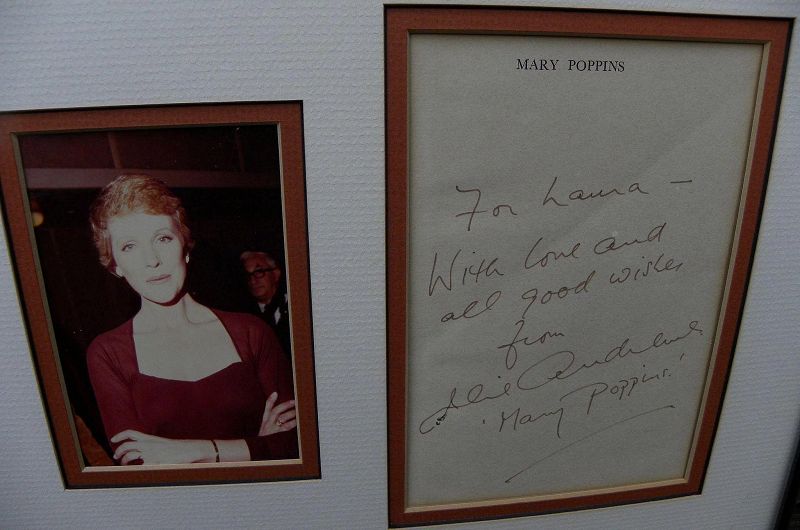 MARY POPPINS
For Laura –
With love and
all good wishes
from
Julie Andrews.
'Mary Poppins.'